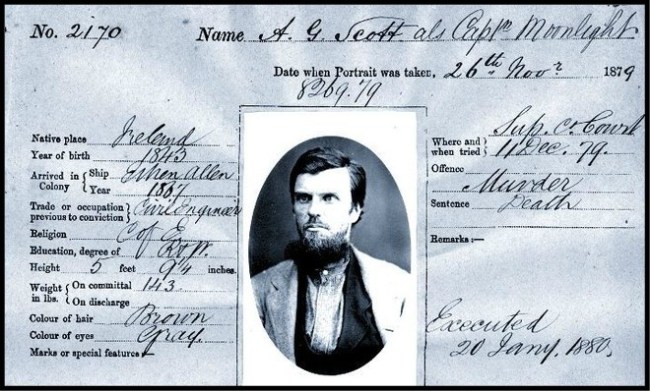 No. 2170 Name A. G. Scott als Captn Moonlight
Date when Portrait was taken, 26th Novr 1879
8269.79
Native place Ireland
Year of birth 1843
Arrived in Colony { Ship Ethen Allen
Year 1867
Trade or occupation previous to conviction } Civil Engineer
Religion C of E
Education, degree of R & W.
Height 5 feet 9¼ inches.
Weight in lbs. { On committal 143
On discharge
Colour of hair Brown
Colour of eyes Gray.
Marks or special features:—
Where and when tried } Sup. Cr Court
11 Dec. 79.
Offence
Murder
Sentence Death
Remarks:—
Executed
20 Jany. 1880.